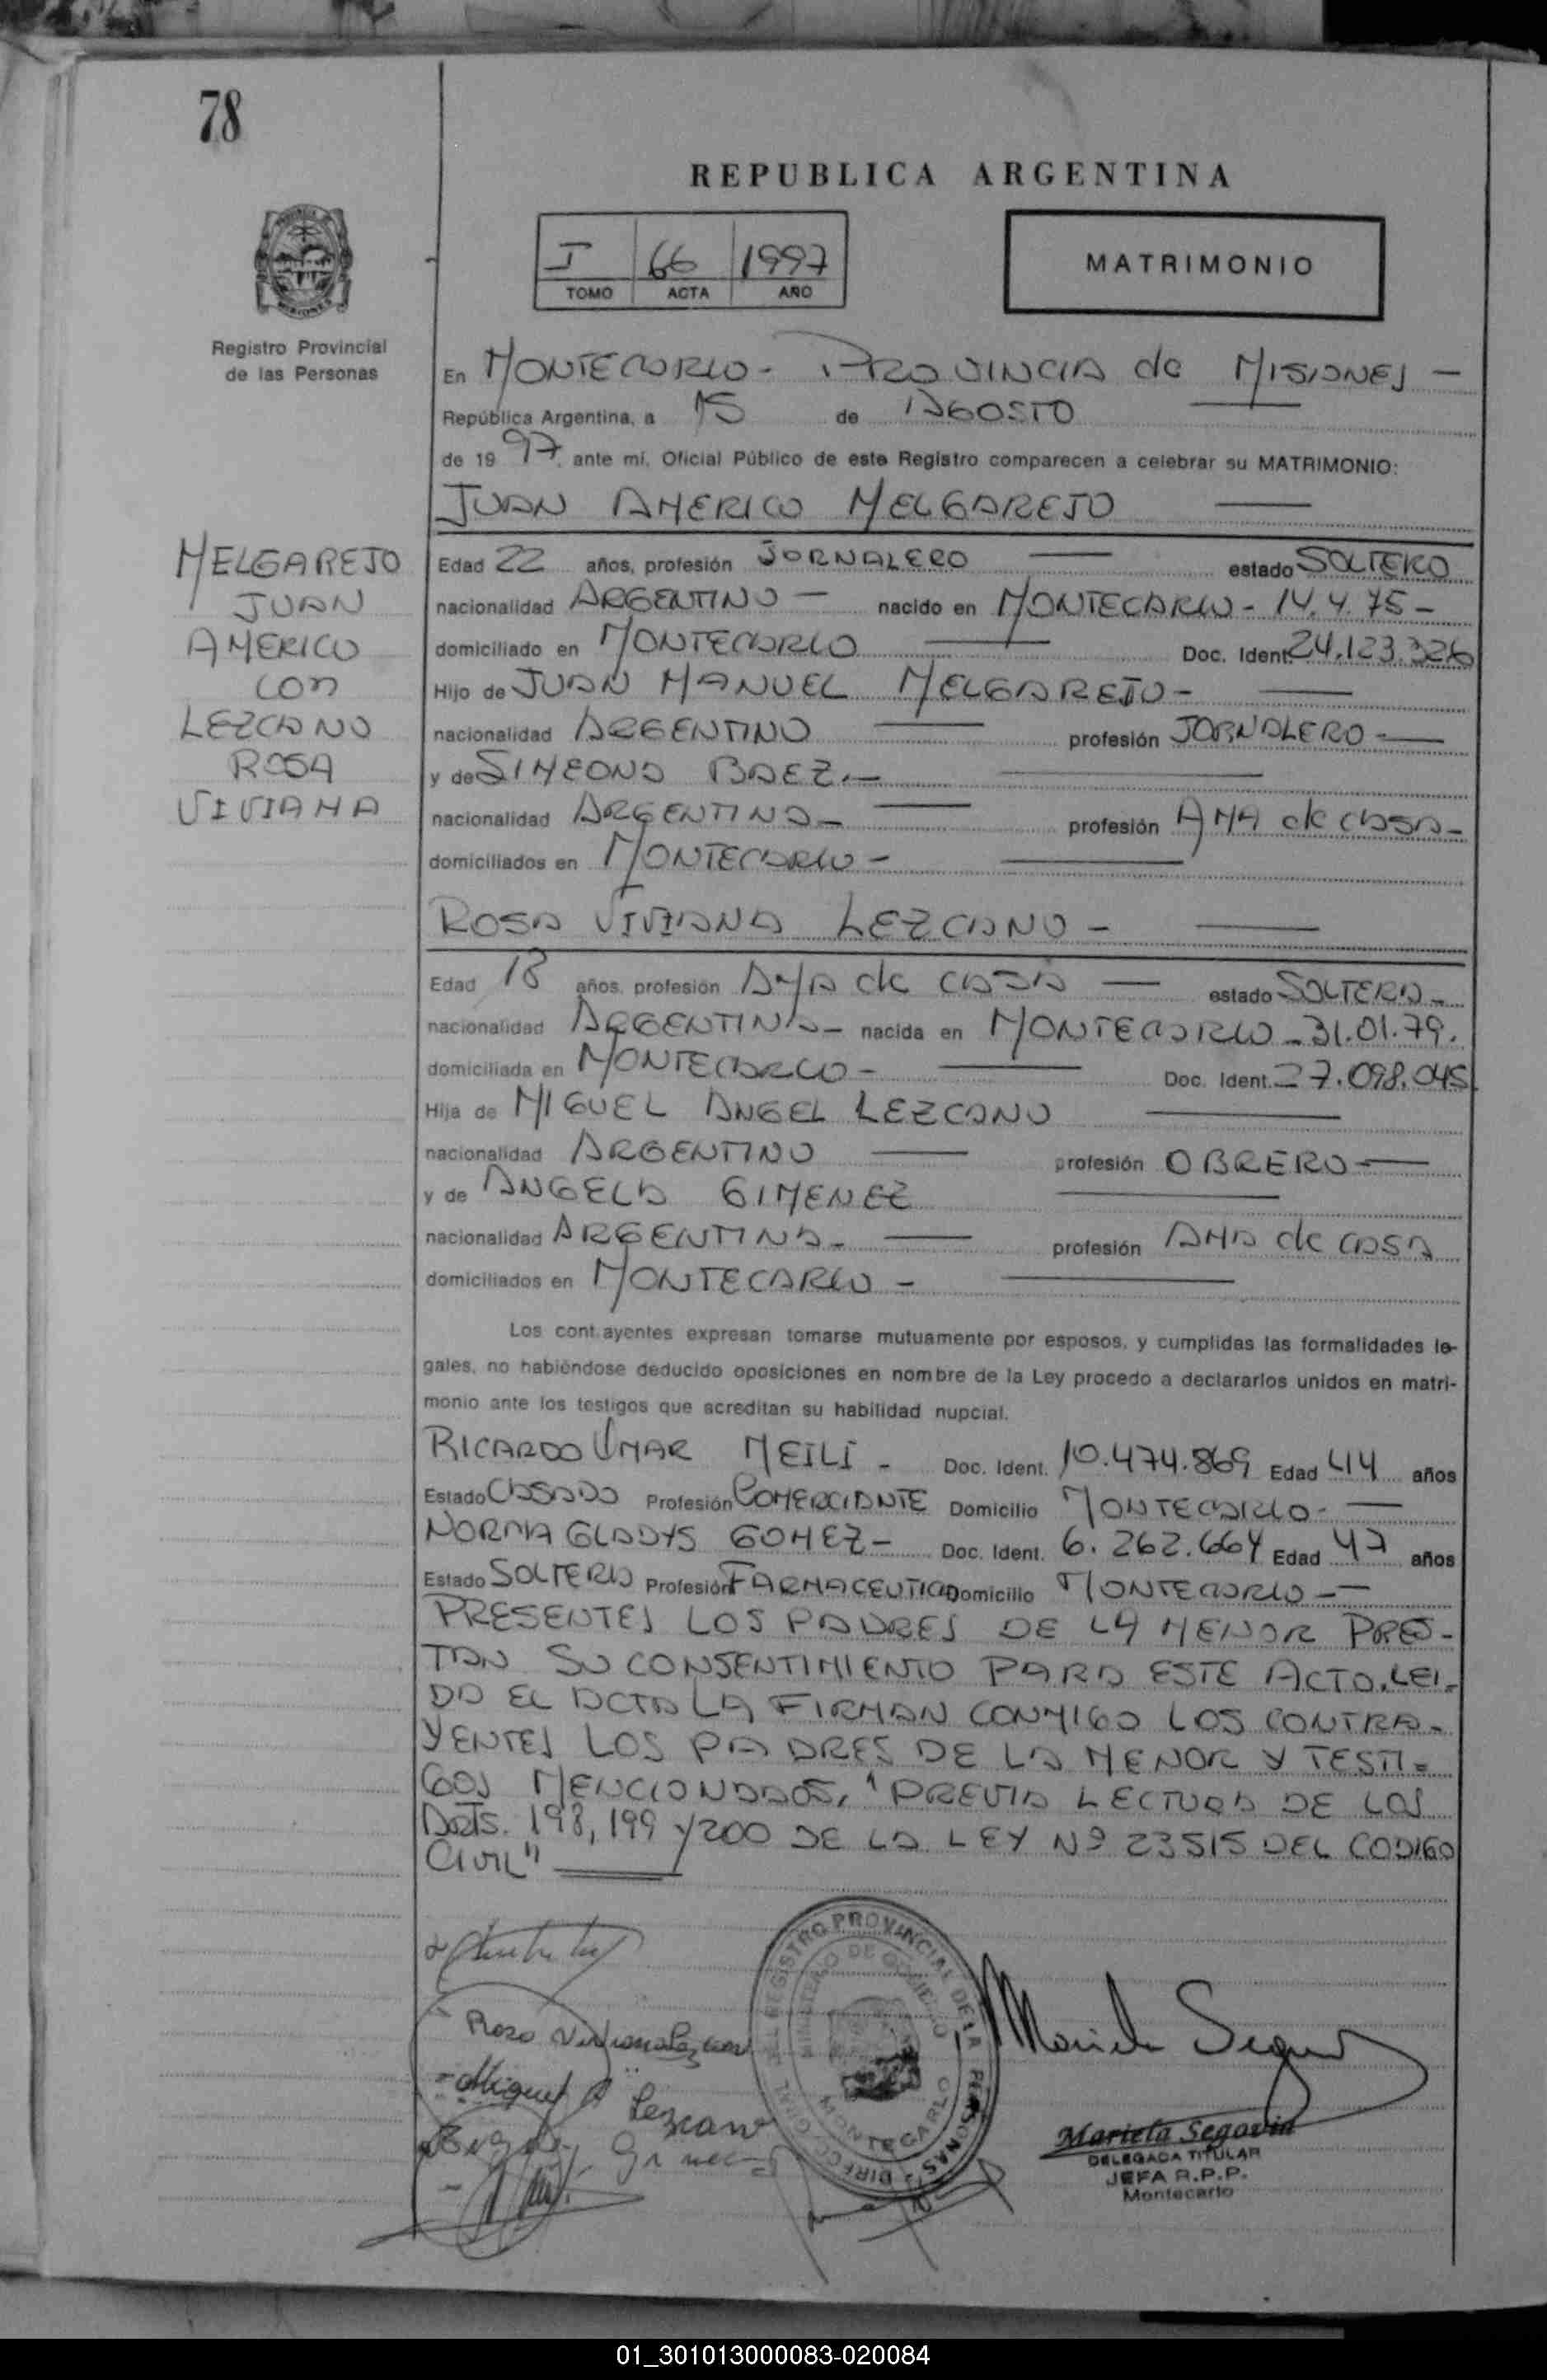 78
REPUBLICA ARGENTINA
I 66 1997
TOMO ACTA AÑO
MATRIMONIO
Registro Provincial
de las Personas
En MONTECARLO - PROVINCIA de MISIONES -
República Argentina, a 15 de AGOSTO
de 1997, ante mí, Oficial Público de este Registro comparecen a celebrar su MATRIMONIO:
JUAN AMERICO MELGAREJO
MELGAREJO
JUAN
AMERICO
con
LEZCANO
ROSA
VIVIANA
Edad 22 años, profesión JORNALERO estado SOLTERO
nacionalidad ARGENTINO - nacido en MONTECARLO - 14.4.75 -
domiciliado en MONTECARLO Doc. Ident. 24.123.326
Hijo de JUAN MANUEL MELGAREJO -
nacionalidad ARGENTINO profesión JORNALERO -
y de SIMEONA BAEZ. -
nacionalidad ARGENTINA - profesión AMA de CASA -
domiciliados en MONTECARLO -
ROSA VIVIANA LEZCANO -
Edad 18 años, profesión AMA de CASA estado SOLTERA -
nacionalidad ARGENTINA - nacida en MONTECARLO - 31.01.79.
domiciliada en MONTECARLO - Doc. Ident. 27.098.045
Hija de MIGUEL ANGEL LEZCANO
nacionalidad ARGENTINO profesión OBRERO -
y de ANGELA GIMENEZ
nacionalidad ARGENTINA - profesión AMA de CASA
domiciliados en MONTECARLO -
Los cont.ayentes expresan tomarse mutuamente por esposos, y cumplidas las formalidades le-
gales, no habiéndose deducido oposiciones en nombre de la Ley procedo a declararlos unidos en matri-
monio ante los testigos que acreditan su habilidad nupcial.
RICARDO OMAR MEILI - Doc. Ident. 10.474.869 Edad 44 años
Estado CASADO Profesión COMERCIANTE Domicilio MONTECARLO -
NORMA GLADYS GOMEZ - Doc. Ident. 6.262.664 Edad 47 años
Estado SOLTERA Profesión FARMACEUTICA Domicilio MONTECARLO -
PRESENTES LOS PADRES DE LA MENOR PRES-
TAN SU CONSENTIMIENTO PARA ESTE ACTO. LEI-
DA EL ACTA LA FIRMAN CONMIGO LOS CONTRA-
YENTES LOS PADRES DE LA MENOR Y TESTI=
GOS MENCIONADOS, "PREVIA LECTURA DE LOS
ARTS. 198, 199 y 200 DE LA LEY Nº 23515 DEL CODIGO
CIVIL"
Rosa Viviana Lezcano
Miguel A Lezcano
REGISTRO PROVINCIAL DE LA PERSONAS
MINISTERIO DE GOBIERNO
MONTECARLO
Mariela Segovia
Mariela Segovia
DELEGADA TITULAR
JEFA R.P.P.
Montecarlo
01_301013000083-020084